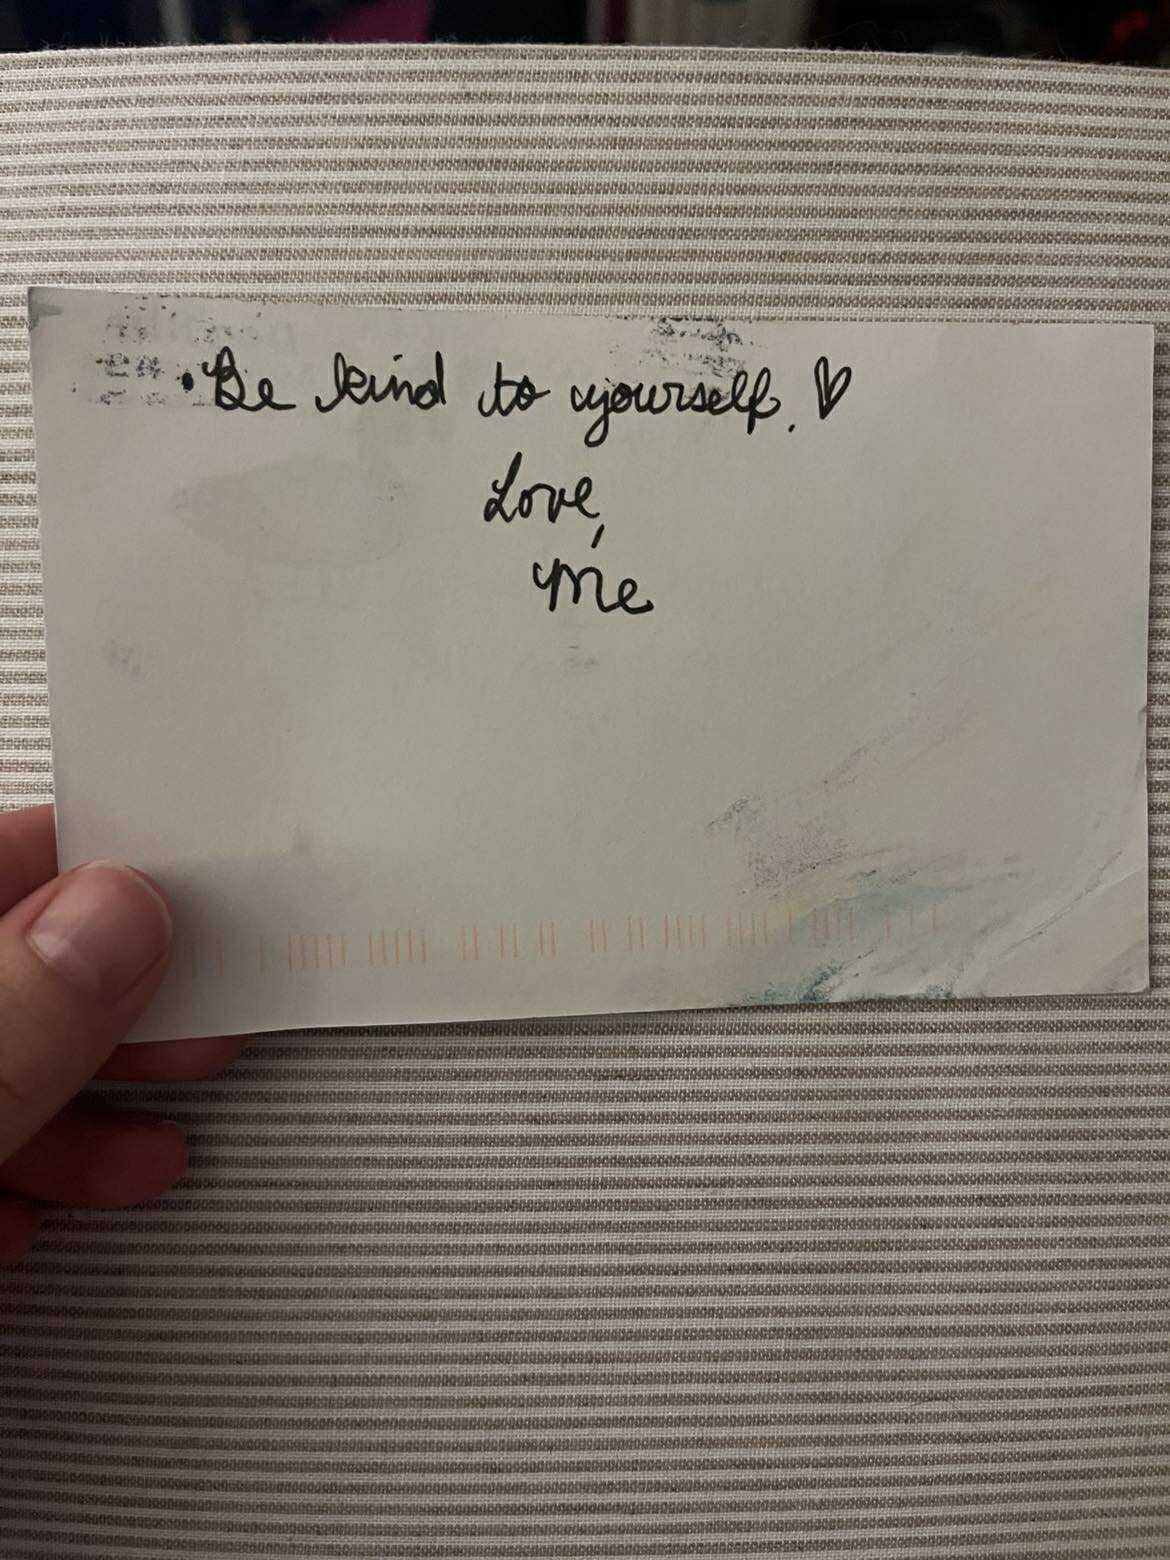 • Be kind to yourself. ♡
Love,
Me